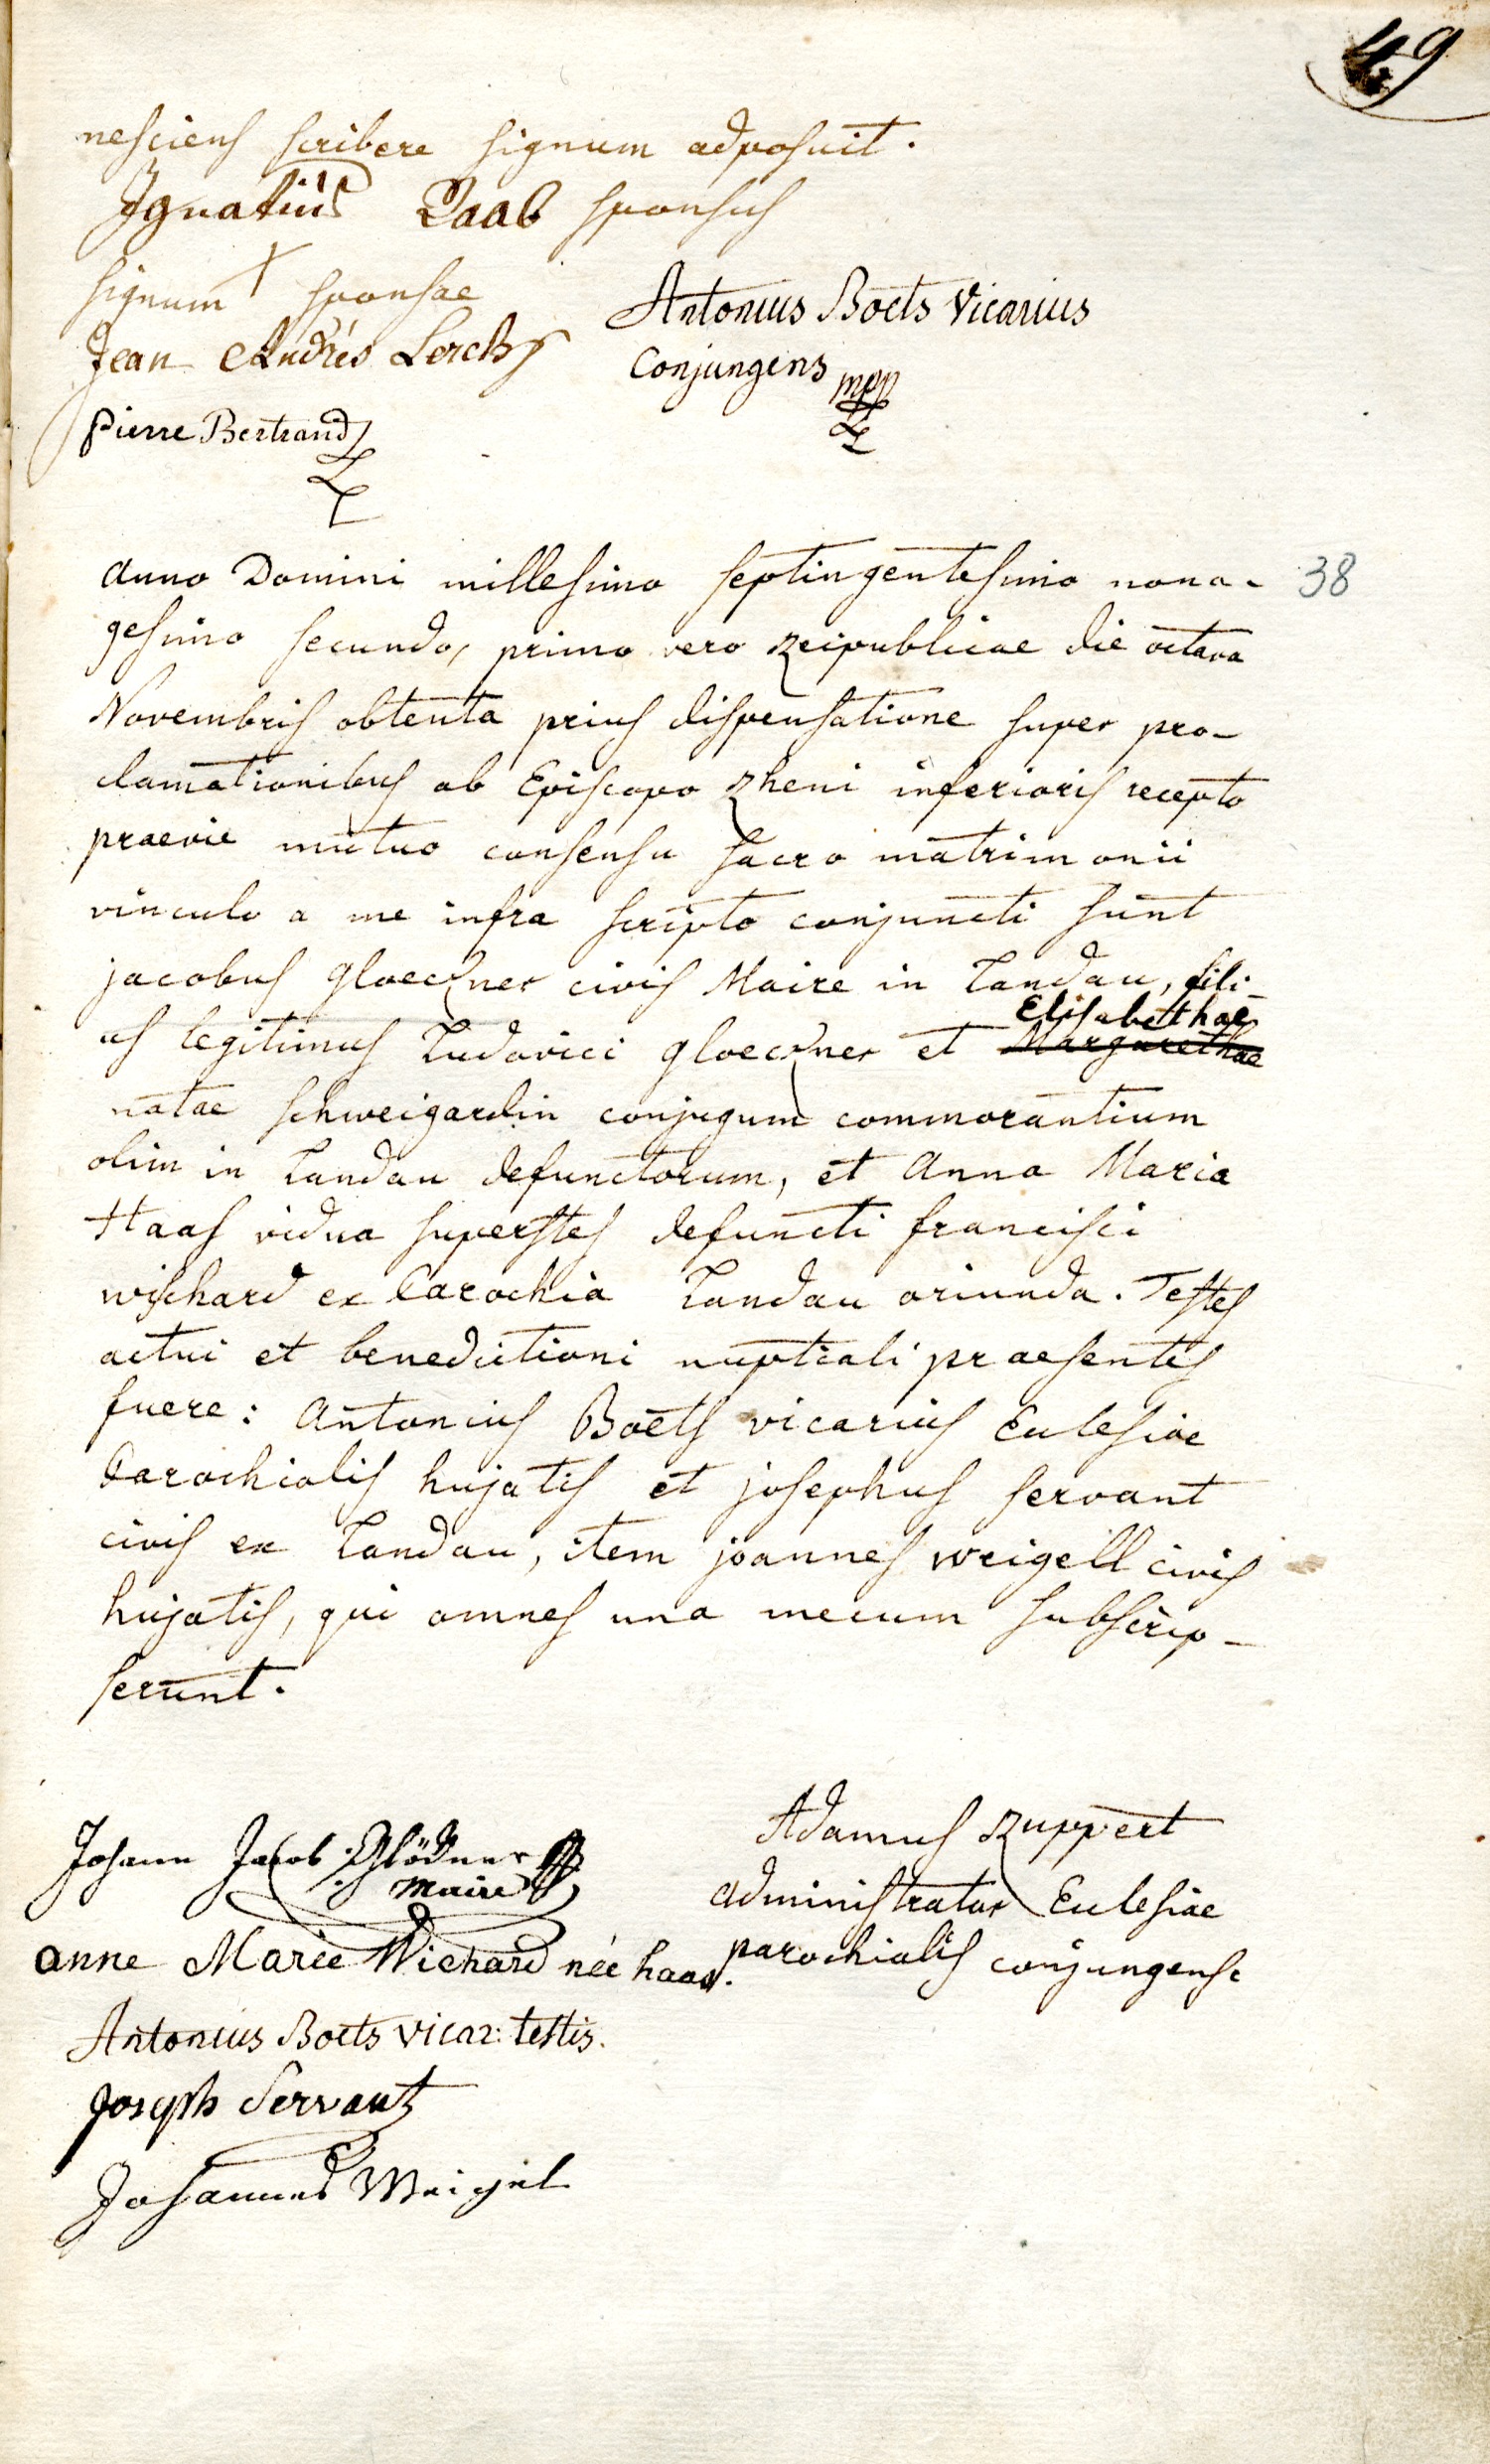 49
nesciens scribere signum adposuit.
Ignatius Raab sponsus
signum + sponsae
Antonius Boets Vicarius
Jean Andrés Lerch
Conjungens mpp
Pierre Bertrand
Anno Domini millesimo septingentesimo nona- 38
gesimo secundo, primo vero Reipublicae die octava
Novembris obtenta prius dispensatione super pro-
clamationibus ab Episcopo Rheni inferioris recepto
praevie mutuo consensu sacro matrimonii
vinculo a me infra scripto conjuncti sunt
jacobus gloeckner civis Maire in Landau, fili-
us legitimus Ludovici gloeckner et Margarethae Elisabethae
natae schweigardin conjugum commorantium
olim in Landau defunctorum, et Anna Maria
Haas vidua superstes defuncti francisci
wischard ex Parochia Landau oriunda. Testes
actui et benedictioni nuptiali praesentes
fuere: Antonius Boets vicarius Eclesiae
Parochialis hujatis et josephus servant
civis ex Landau, item joannes weigell civis
hujatis, qui omnes una mecum subscrip-
serunt.
Johann Jacob Glöckner
Maire
Adamus Ruppert
administrator Eclesiae
parochialis conjungens
anne Marie Wichard née haas.
Antonius Boets vicar: testis.
Joseph Servant
Johannes Weigel